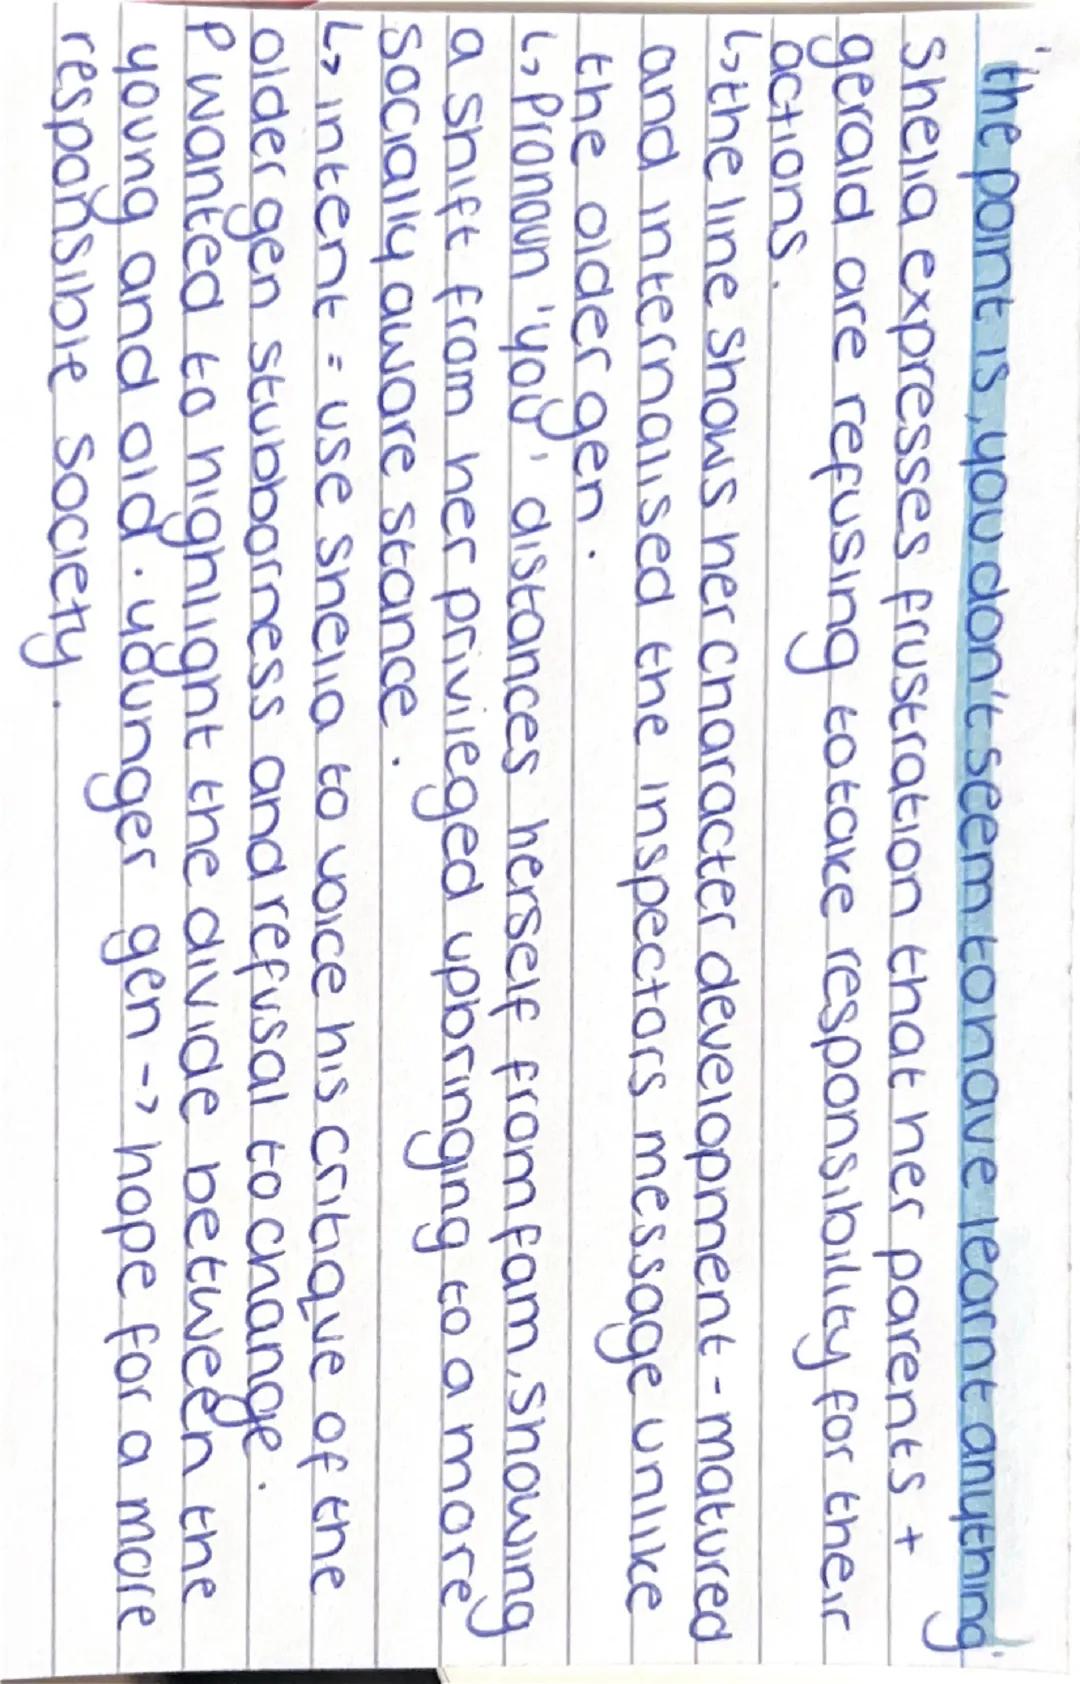 'the point is, you don't seem to have learnt anything'
Sheila expresses frustration that her parents +
gerald are refusing to take responsibility for their
actions.
↳ the line shows her character development - matured
and internalised the inspectors message unlike
the older gen.
↳ Pronoun 'you' distances herself from fam, showing
a shift from her privileged upbringing to a more
socially aware stance.
↳ intent = use sheila to voice his critique of the
older gen stubborness and refusal to change.
P wanted to highlight the divide between the
young and old. younger gen -> hope for a more
responsible society.